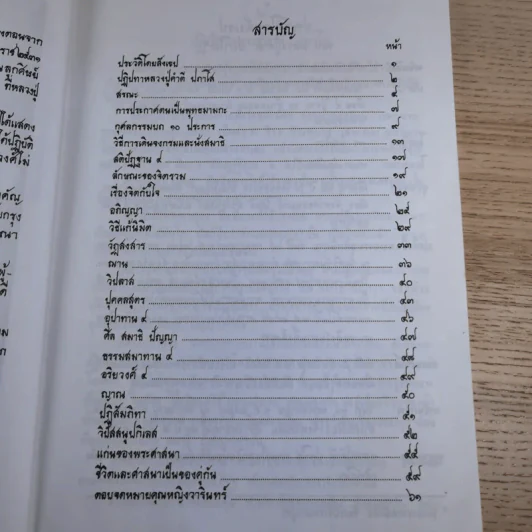 สารบัญ
หน้า
ประวัติโดยสังเขป ๑
ปฏิปทาหลวงปู่คำดี ปภาโส ๒
สรณะ
การประกาศตนเป็นพุทธมามกะ ๗
กุศลกรรมบถ ๑๐ ประการ ๙
วิธีการเดินจงกรมและนั่งสมาธิ ๑๓
สติปัฏฐาน ๔ ๑๗
ลักษณะของจิตรวม ๑๙
เรื่องจิตกับใจ ๒๑
อภิญญา ๒๕
วิธีแก้นิมิต ๒๙
วัฏสงสาร ๓๓
ฌาน ๓๖
วิปลาส ๔๐
ปุคคลสูตร ๔๓
อุปาทาน ๔ ๔๖
ศีล สมาธิ ปัญญา ๔๗
ธรรมสมาทาน ๔
อริยวงศ์ ๔ ๔๙
ญาณ ๕๐
ปฏิสัมภิทา ๕๑
วิปัสสนูปกิเลส ๕๒
แก่นของพระศาสนา ๕๕
ชีวิตและศาสนาเป็นของคู่กัน ๕๙
ตอบจดหมายคุณหญิงวารินทร์ ๖๑